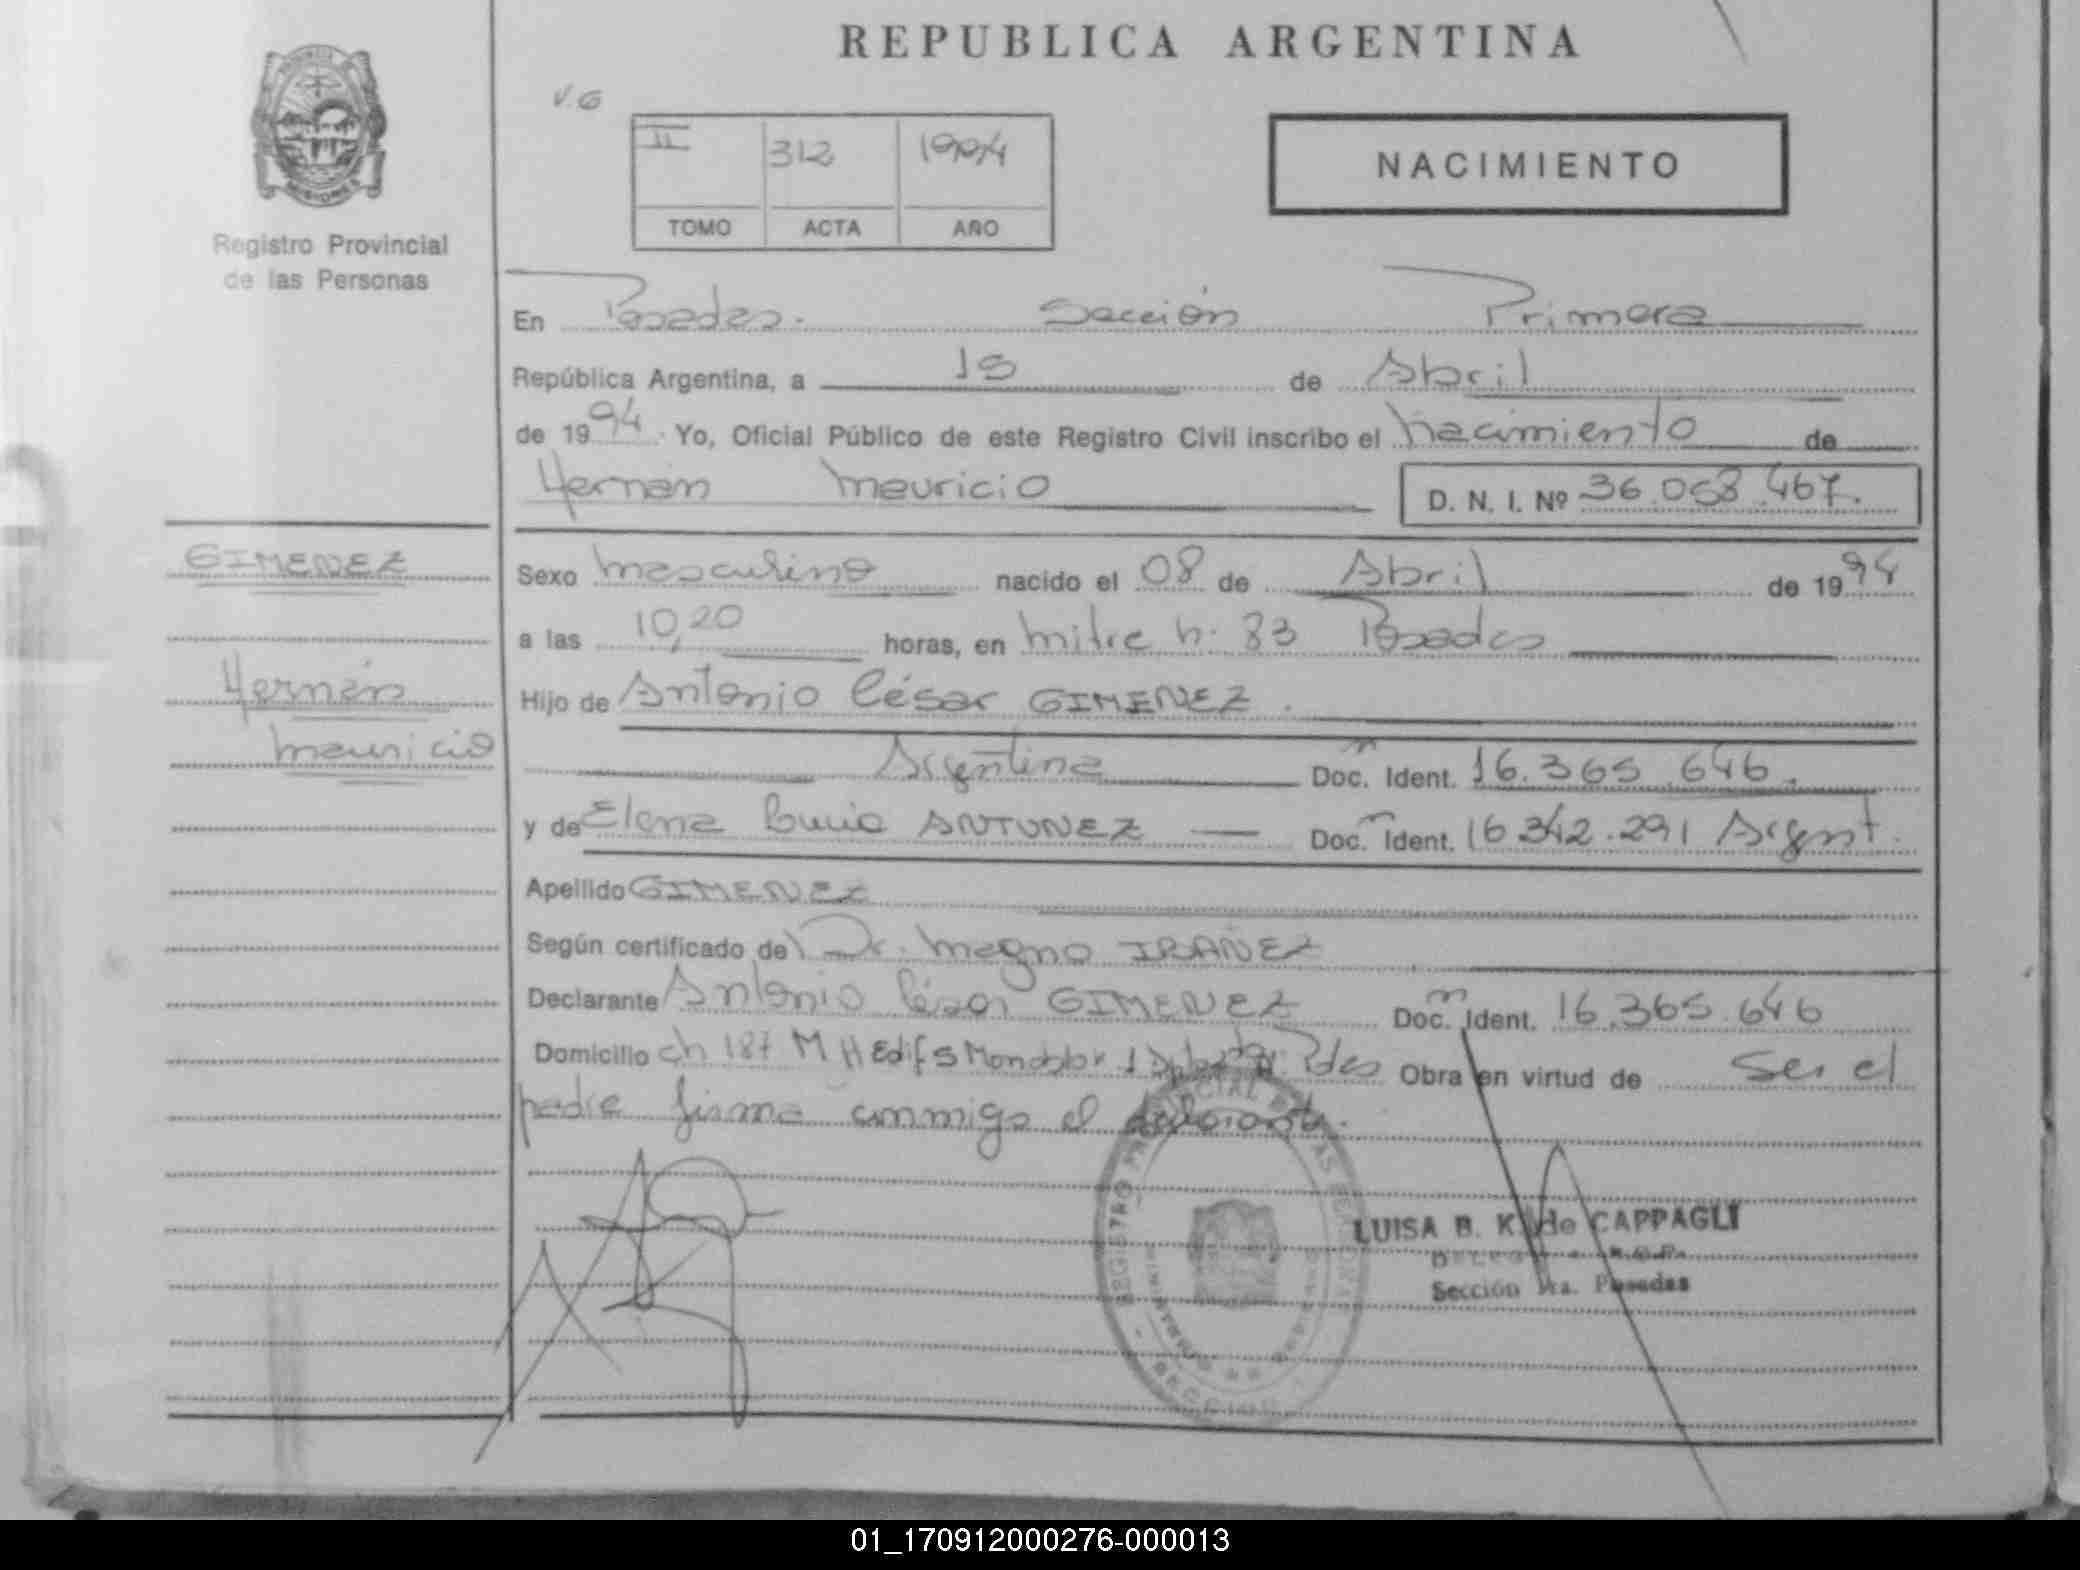 REPUBLICA ARGENTINA
V.G
II 312 1994
TOMO ACTA AÑO
NACIMIENTO
Registro Provincial
de las Personas
En Posadas. Sección Primera
República Argentina, a 15 de Abril
de 1994. Yo, Oficial Público de este Registro Civil inscribo el nacimiento de
Hernán Mauricio D. N. I. Nº 36.058.467.
GIMENEZ
Hernán
Mauricio
Sexo masculino nacido el 08 de Abril de 1994
a las 10,20 horas, en Mitre n. 83 Posadas
Hijo de Antonio César GIMENEZ.
Argentina Doc. m Ident. 16.365.646.
y de Elena Lucia ANTUNEZ Doc. m Ident. 16.342.291 Argent.
Apellido GIMENEZ
Según certificado de Dr. Magno IBAÑEZ
Declarante Antonio César GIMENEZ Doc. m Ident. 16.365.646
Domicilio ch 187 M H Edif 5 Monoblok 1 Pdas Obra en virtud de Ser el
padre firma conmigo el declarante.
REGISTRO PROVINCIAL DE LAS PERSONAS
LUISA B. K. de CAPPAGLI
Sección 1ra. Posadas
01_170912000276-000013